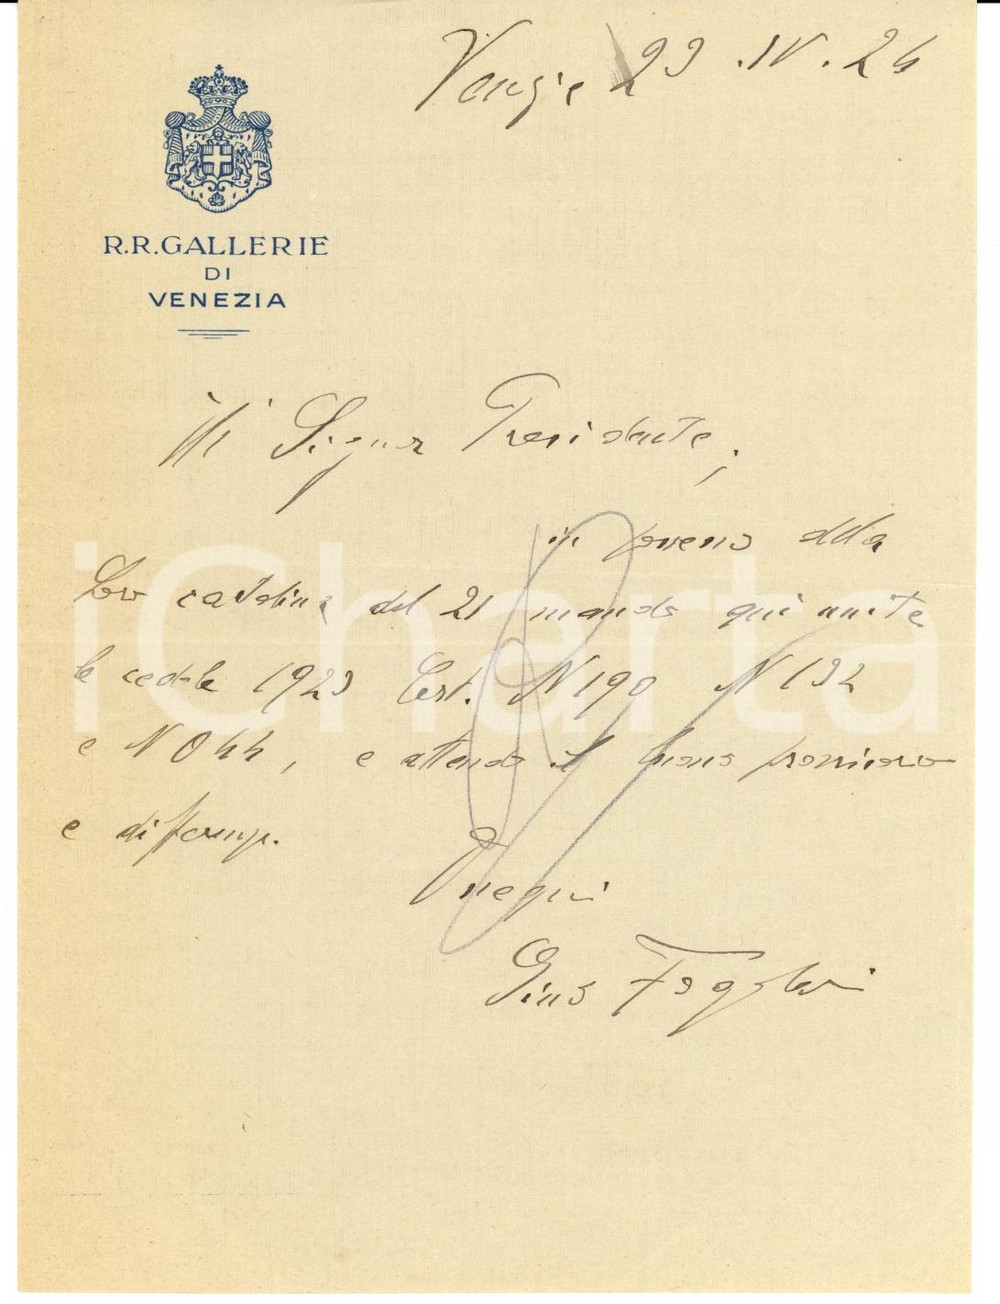 Venezia 23.IV.24
R.R.GALLERIE
DI
VENEZIA
Ill Signor Presidente,
in possesso della
Sua cartolina del 21 mando qui unite
le cedole 1923 Cert. N 190 N 132
e N 044, e attendo il buono
e
Ossequi
Gino Fogolari
iCharta